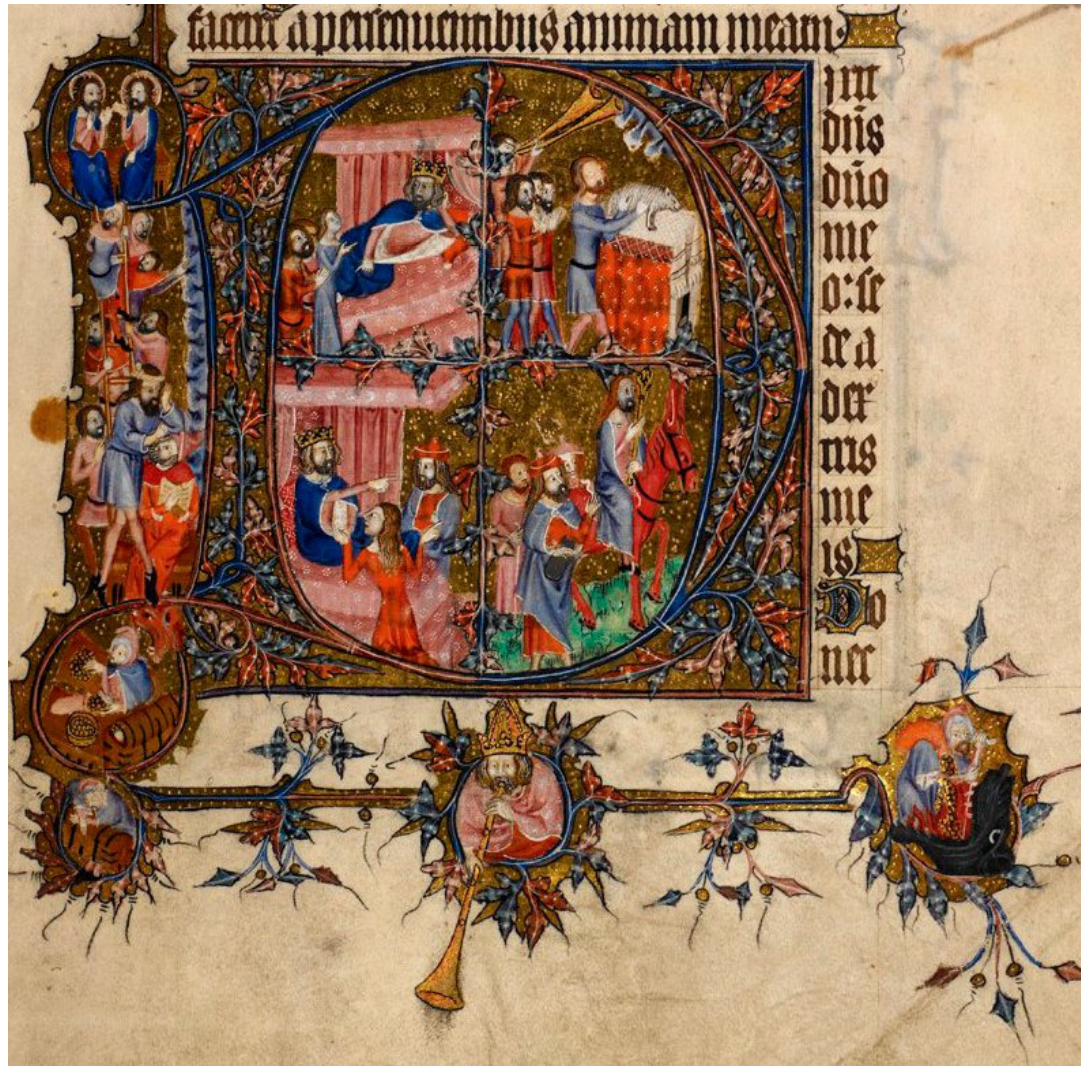 faceret a persequentibus animam meam.
D ixit
dn̄s
dn̄o
me
o: se
de a
dex
tris
me
is
Do
nec